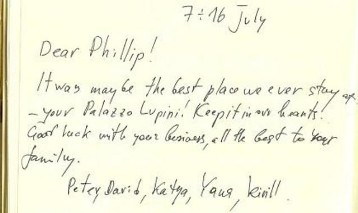 7÷16 July
Dear Phillip!
It was maybe the best place we ever stay
- your Palazzo Lupini! Keep it in our hearts.
Good luck with your business, all the best to your
family.
Petey David, Katya, Yana, Kirill.